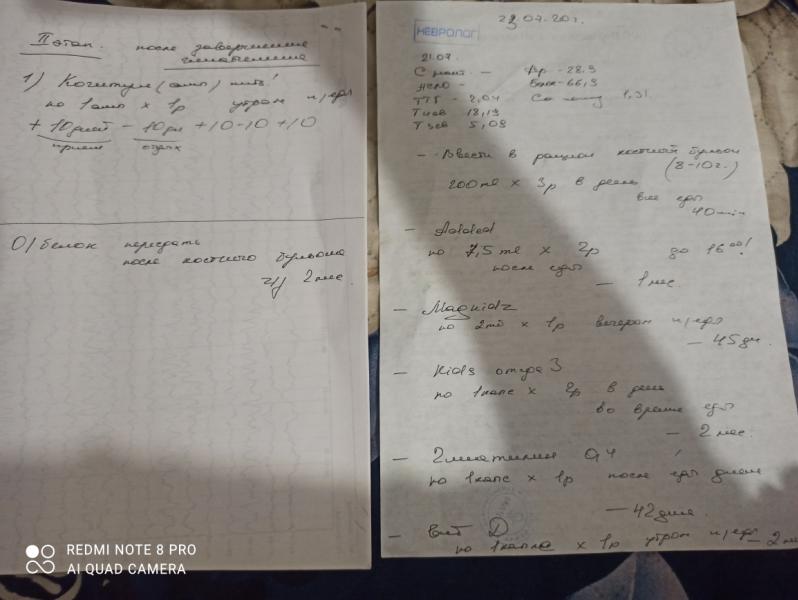 II этап. после завершения
глиатилина
1) Когитум (амп) пить!
по 1 амп х 1р утром п/еды
+ 10 дней - 10 дн + 10 - 10 + 10
прием отдых
О/белок пересдать
после костного бульона
ч/з 2 мес.
НЕВРОЛОГ
21.07
Fр - 28.3
66,3
ТТГ - 2,04 1,31
18,19
5,08
- Ввести в рацион костный бульон
(8-10 г.)
200 ml х 3р в день
вне еды
40 min
- Added
по 7,5 ml х 2р до 16 00!
после еды
- 1 мес.
- Magkidz
по 2 х 1р вечером п/еды
- 45 дн.
- Kids омега 3
по 1 капс х 2р в день
во время еды
- 2 мес.
- Глиатилин 0,4
по 1 капс х 1р после еды днем
- 42 дня
- Вит D
по 1 капле х 1р утром п/еды - 2 мес
REDMI NOTE 8 PRO
AI QUAD CAMERA